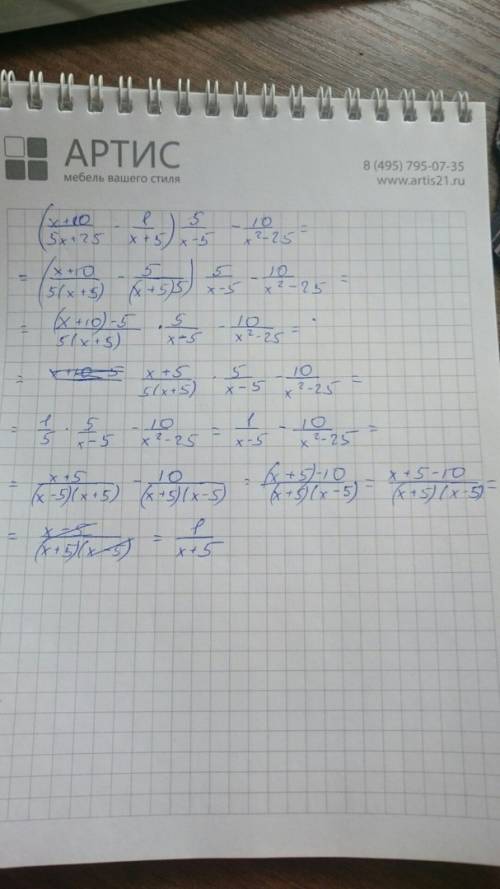 АРТИС
мебель вашего стиля
8 (495) 795-07-35
www.artis21.ru
(x+10/5x+25 - 1/x+5) 5/x-5 - 10/x²-25 =
= (x+10/5(x+5) - 5/(x+5)5) 5/x-5 - 10/x²-25 =
= (x+10)-5/5(x+5) · 5/x-5 - 10/x²-25 =
= x+5/5(x+5) · 5/x-5 - 10/x²-25 =
= 1/5 · 5/x-5 - 10/x²-25 = 1/x-5 - 10/x²-25 =
= x+5/(x-5)(x+5) - 10/(x+5)(x-5) = (x+5)-10/(x+5)(x-5) = x+5-10/(x+5)(x-5) =
= x-5/(x+5)(x-5) = 1/x+5